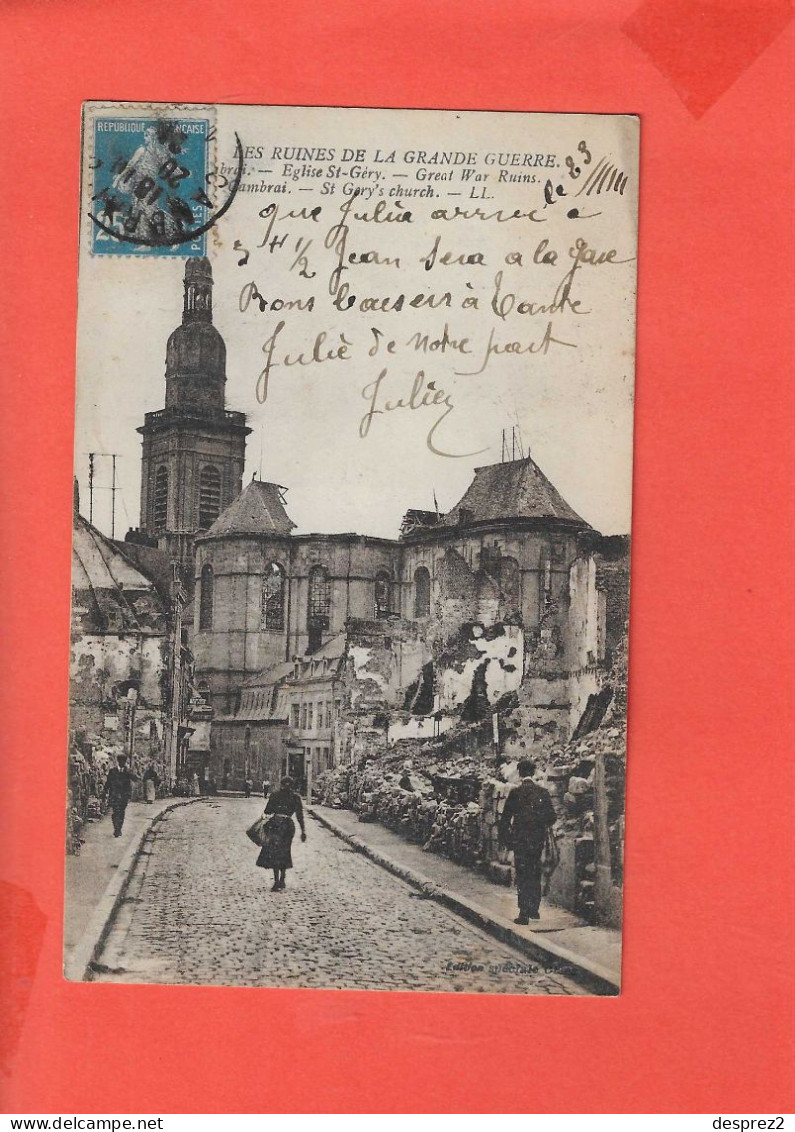 LES RUINES DE LA GRANDE GUERRE.
brai. — Eglise St-Géry. — Great War Ruins.
Cambrai. — St Gery's church. — LL.
REPUBLIQUE FRANÇAISE
25
POSTES
CAMBRAI
20
le 23
que Julia arrive à
3 H 1/2 Jean sera a la gare
Bons baisers à Tante
Julie de notre part
Julien
Edition spéciale
delcampe.net
desprez2